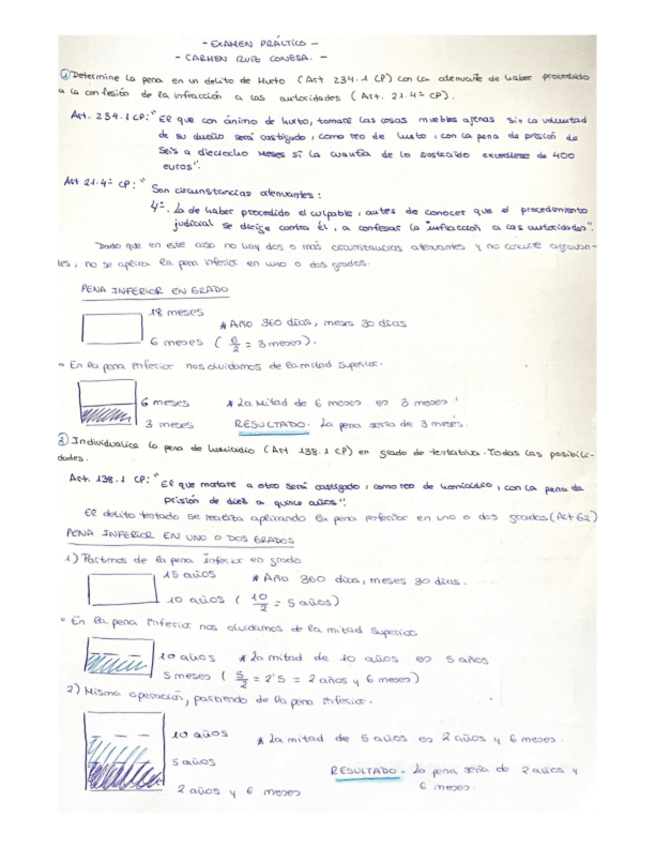 - EXAMEN PRÁCTICO -
- CARMEN RUIZ CONESA. -
① Determine la pena en un delito de Hurto (Art 234.1 CP) con la atenuante de haber procedido
a la confesión de la infracción a las autoridades (Art. 21.4ª CP).
Art. 234.1 CP: "El que con ánimo de hurto, tomare las cosas muebles ajenas sin la voluntad
de su dueño será castigado, como reo de hurto, con la pena de prisión de
seis a dieciocho meses si la cuantía de lo sustraído excediese de 400
euros".
Art 21.4ª CP: " Son circunstancias atenuantes:
4ª. La de haber procedido el culpable, antes de conocer que el procedimiento
judicial se dirige contra él, a confesar la infracción a las autoridades".
Dado que en este caso no hay dos o más circunstancias atenuantes y no concurre agravan-
tes, no se aplica la pena inferior en uno o dos grados.
PENA INFERIOR EN GRADO
18 meses
* Año 360 días, meses 30 días
6 meses ( 6/2 = 3 meses).
• En la pena inferior nos olvidamos de la mitad superior.
6 meses * La mitad de 6 meses es 3 meses.
3 meses RESULTADO. La pena sería de 3 meses.
② Individualice la pena de homicidio (Art 138.1 CP) en grado de tentativa. Todas las posibili-
dades.
Art. 138.1 CP: "El que matare a otro será castigado, como reo de homicidio, con la pena de
prisión de diez a quince años".
El delito tentado se realiza aplicando la pena inferior en uno o dos grados (Art 62)
PENA INFERIOR EN UNO O DOS GRADOS
1) Partimos de la pena inferior en grado
15 años * Año 360 días, meses 30 días.
10 años ( 10/2 = 5 años)
• En la pena inferior nos olvidamos de la mitad superior
10 años * La mitad de 10 años es 5 años
5 meses ( 5/2 = 2'5 = 2 años y 6 meses)
2) Misma operación, partiendo de la pena inferior.
10 años * La mitad de 5 años es 2 años y 6 meses.
5 años
RESULTADO - La pena sería de 2 años y
2 años y 6 meses 6 meses.